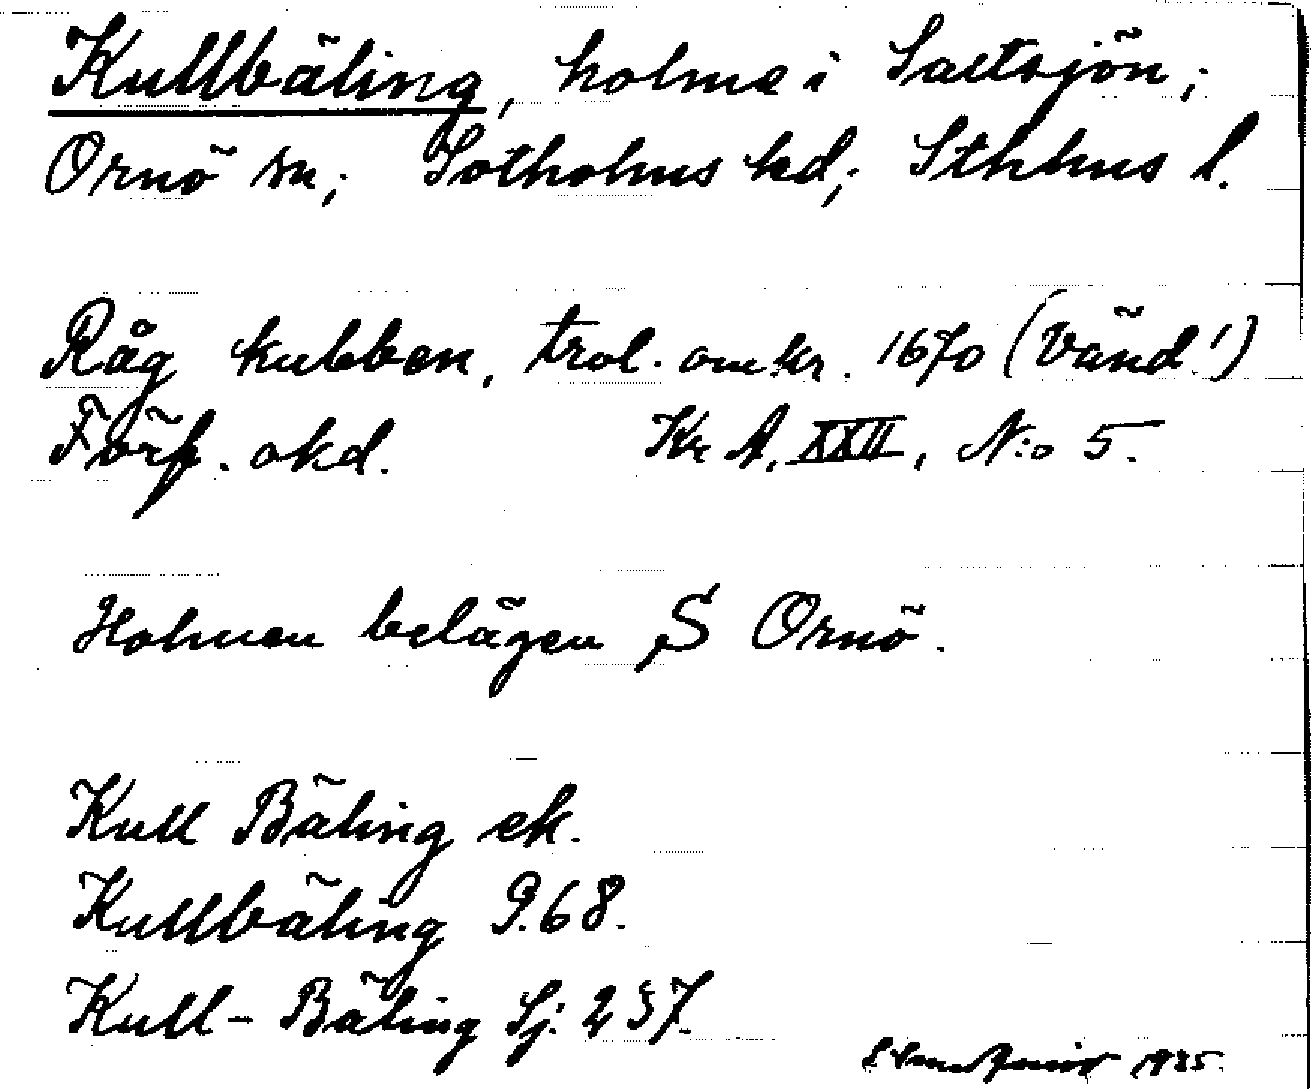 Kullbäling, holme i Saltsjön;
Ornö sn; Sotholms hd; Sthlms l.
Råg kubben, trol. omkr. 1670 (Vänd!)
Förf. okd. Kr A, XXII, N:o 5.
Holmen belägen S Ornö.
Kull Bäling ek.
Kullbäling 9.68.
Kull-Bäling Sj. 237.
1935.